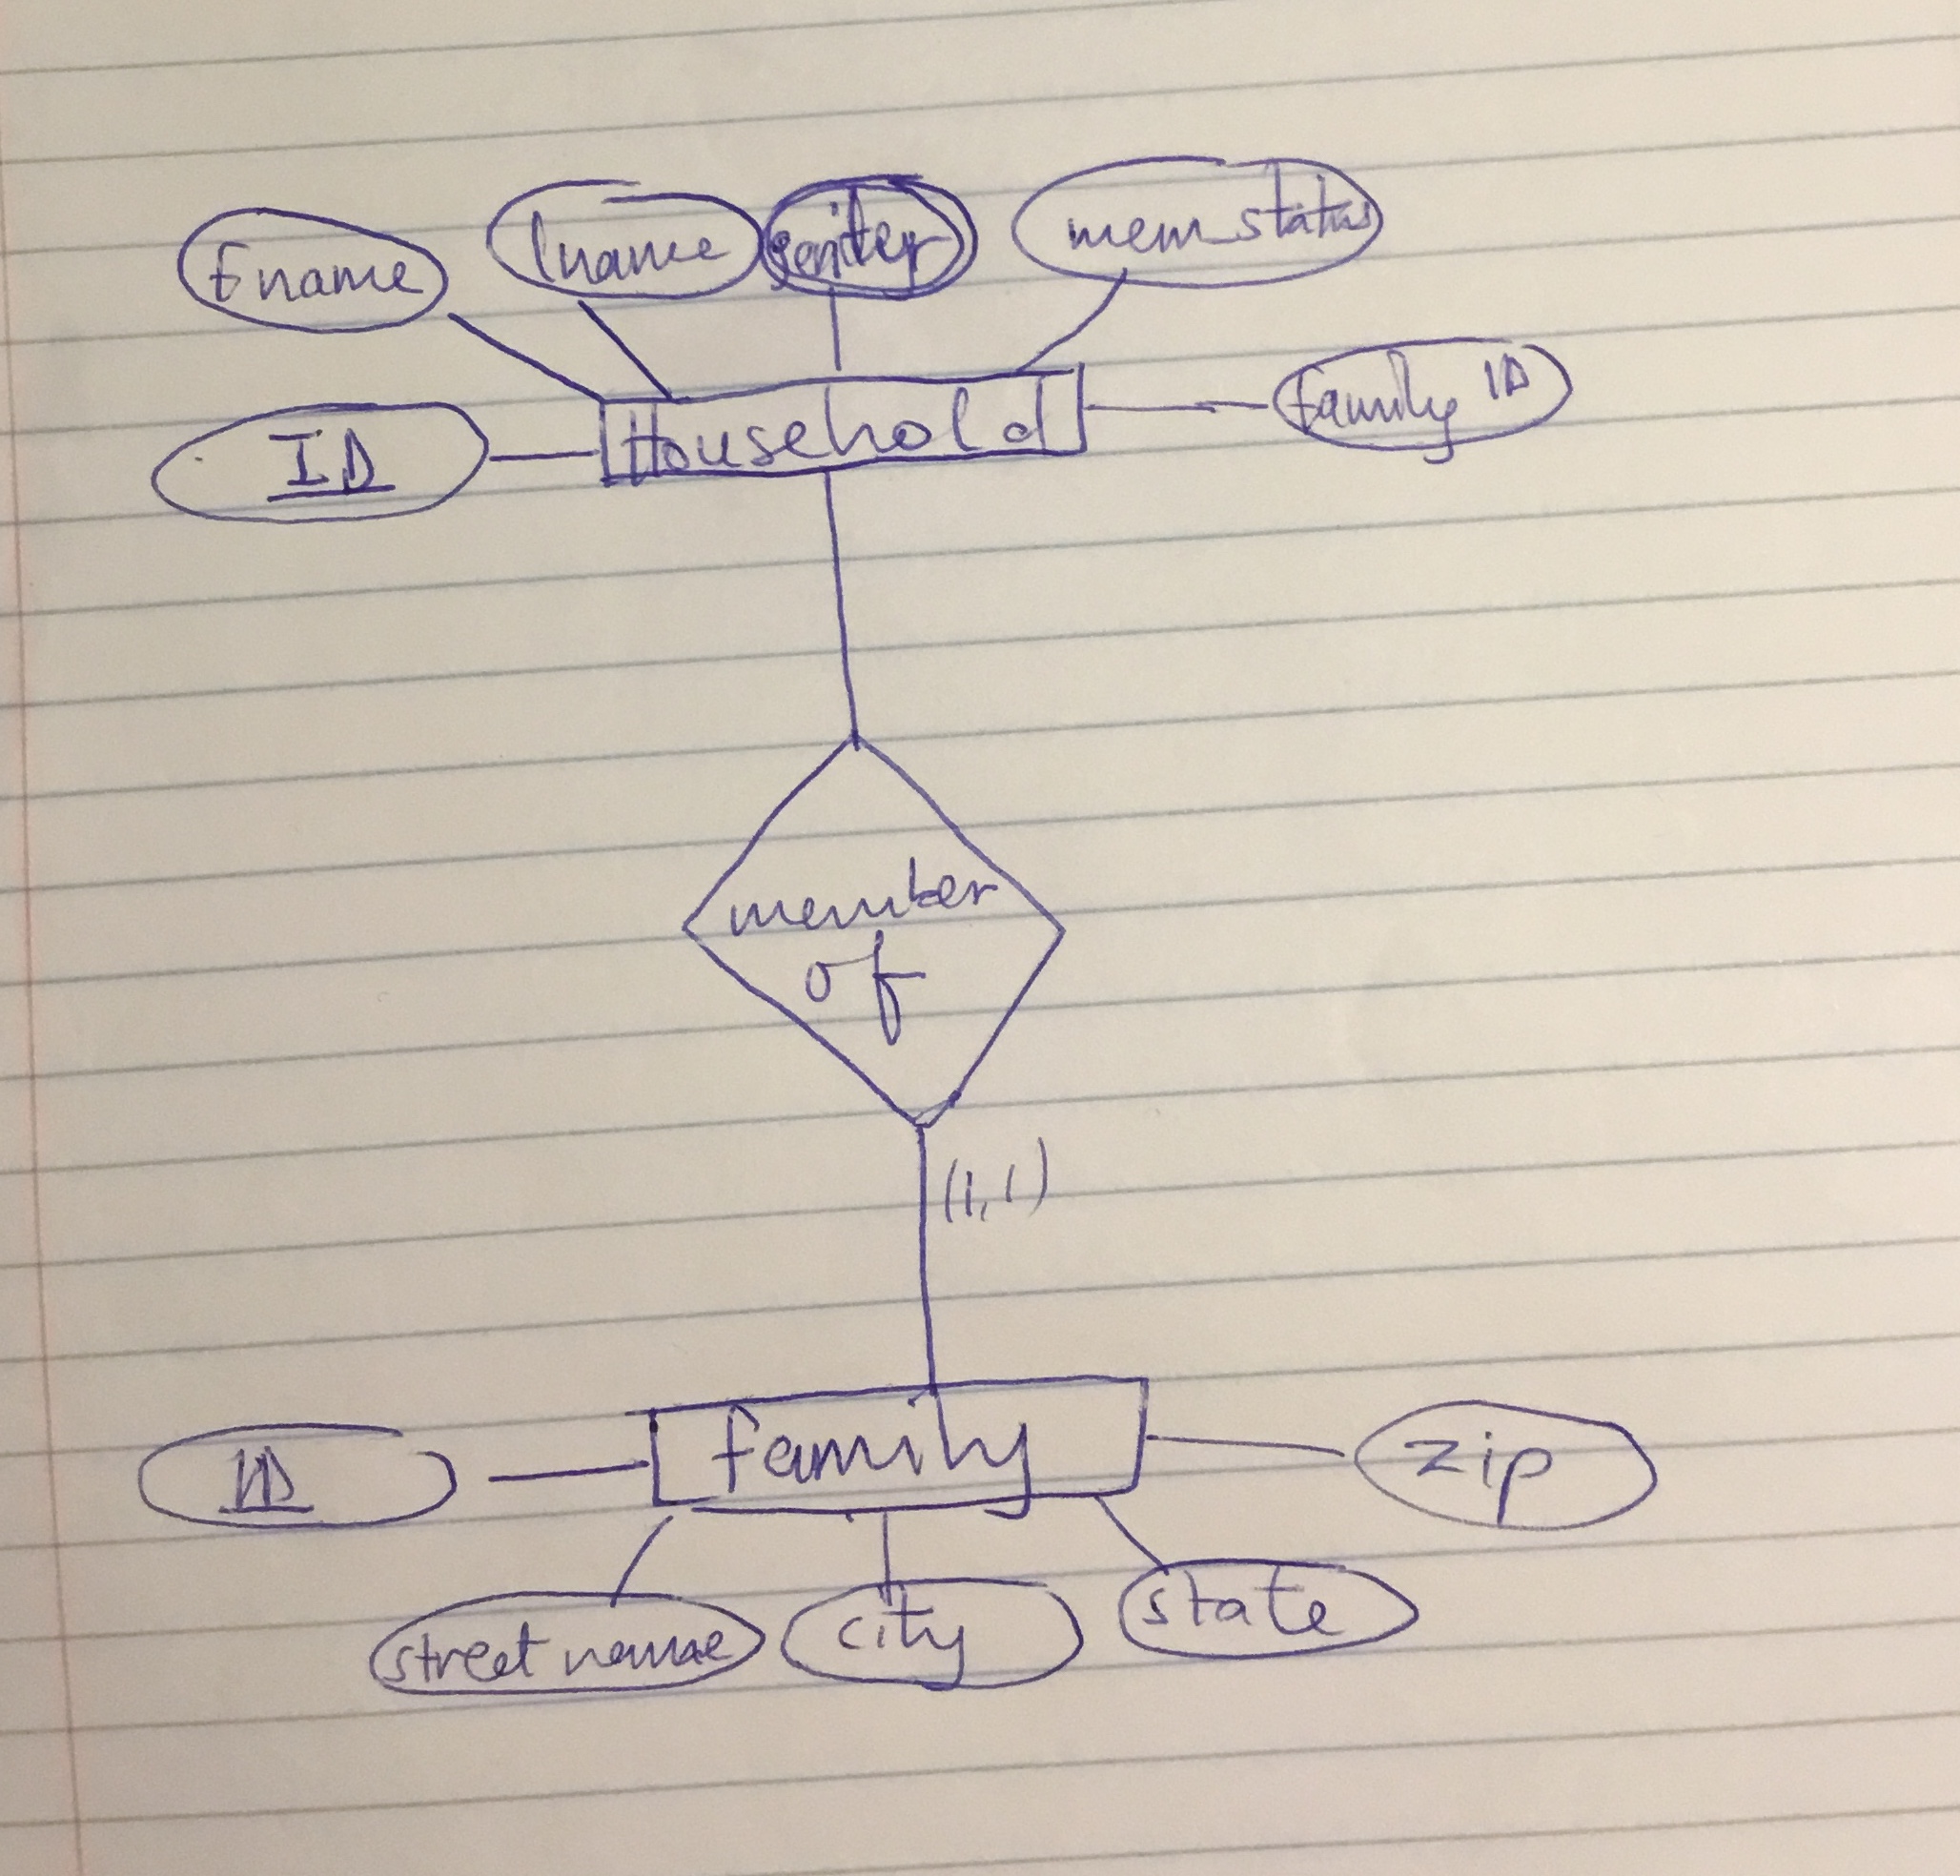 fname
lname
mem_status
ID
Household
family ID
member
of
(1,1)
ID
family
zip
street name
city
state